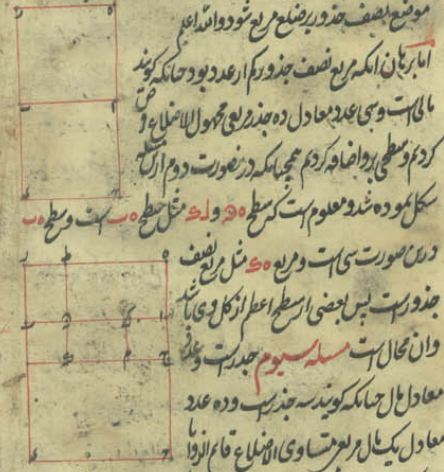 موضع نصف جذور بر ضلع مربع شود والله اعلم
اما برهان انکه مربع نصف جذور کم از عدد بود چنانکه کویند
مالی است و سی عدد معادل ده جذر مربعی مجهول الاضلاع
کردیم و سطحی برو اضافه کردیم همچنانکه در صورت دوم از
شکل نموده شد و معلوم است که سطح ه و مثل سطح ه ب است و سطح ه ب
درین صورت سی است و مربع ه مثل مربع نصف
جذور است پس بعضی از سطح اعظم از کل وی باشد
وان محال است مسله سیوم جذر است و عدد
معادل مال چنانکه کویند سه جذر است و ده عدد
معادل یک مال مربعی متساوی الاضلاع قائم الزوایا